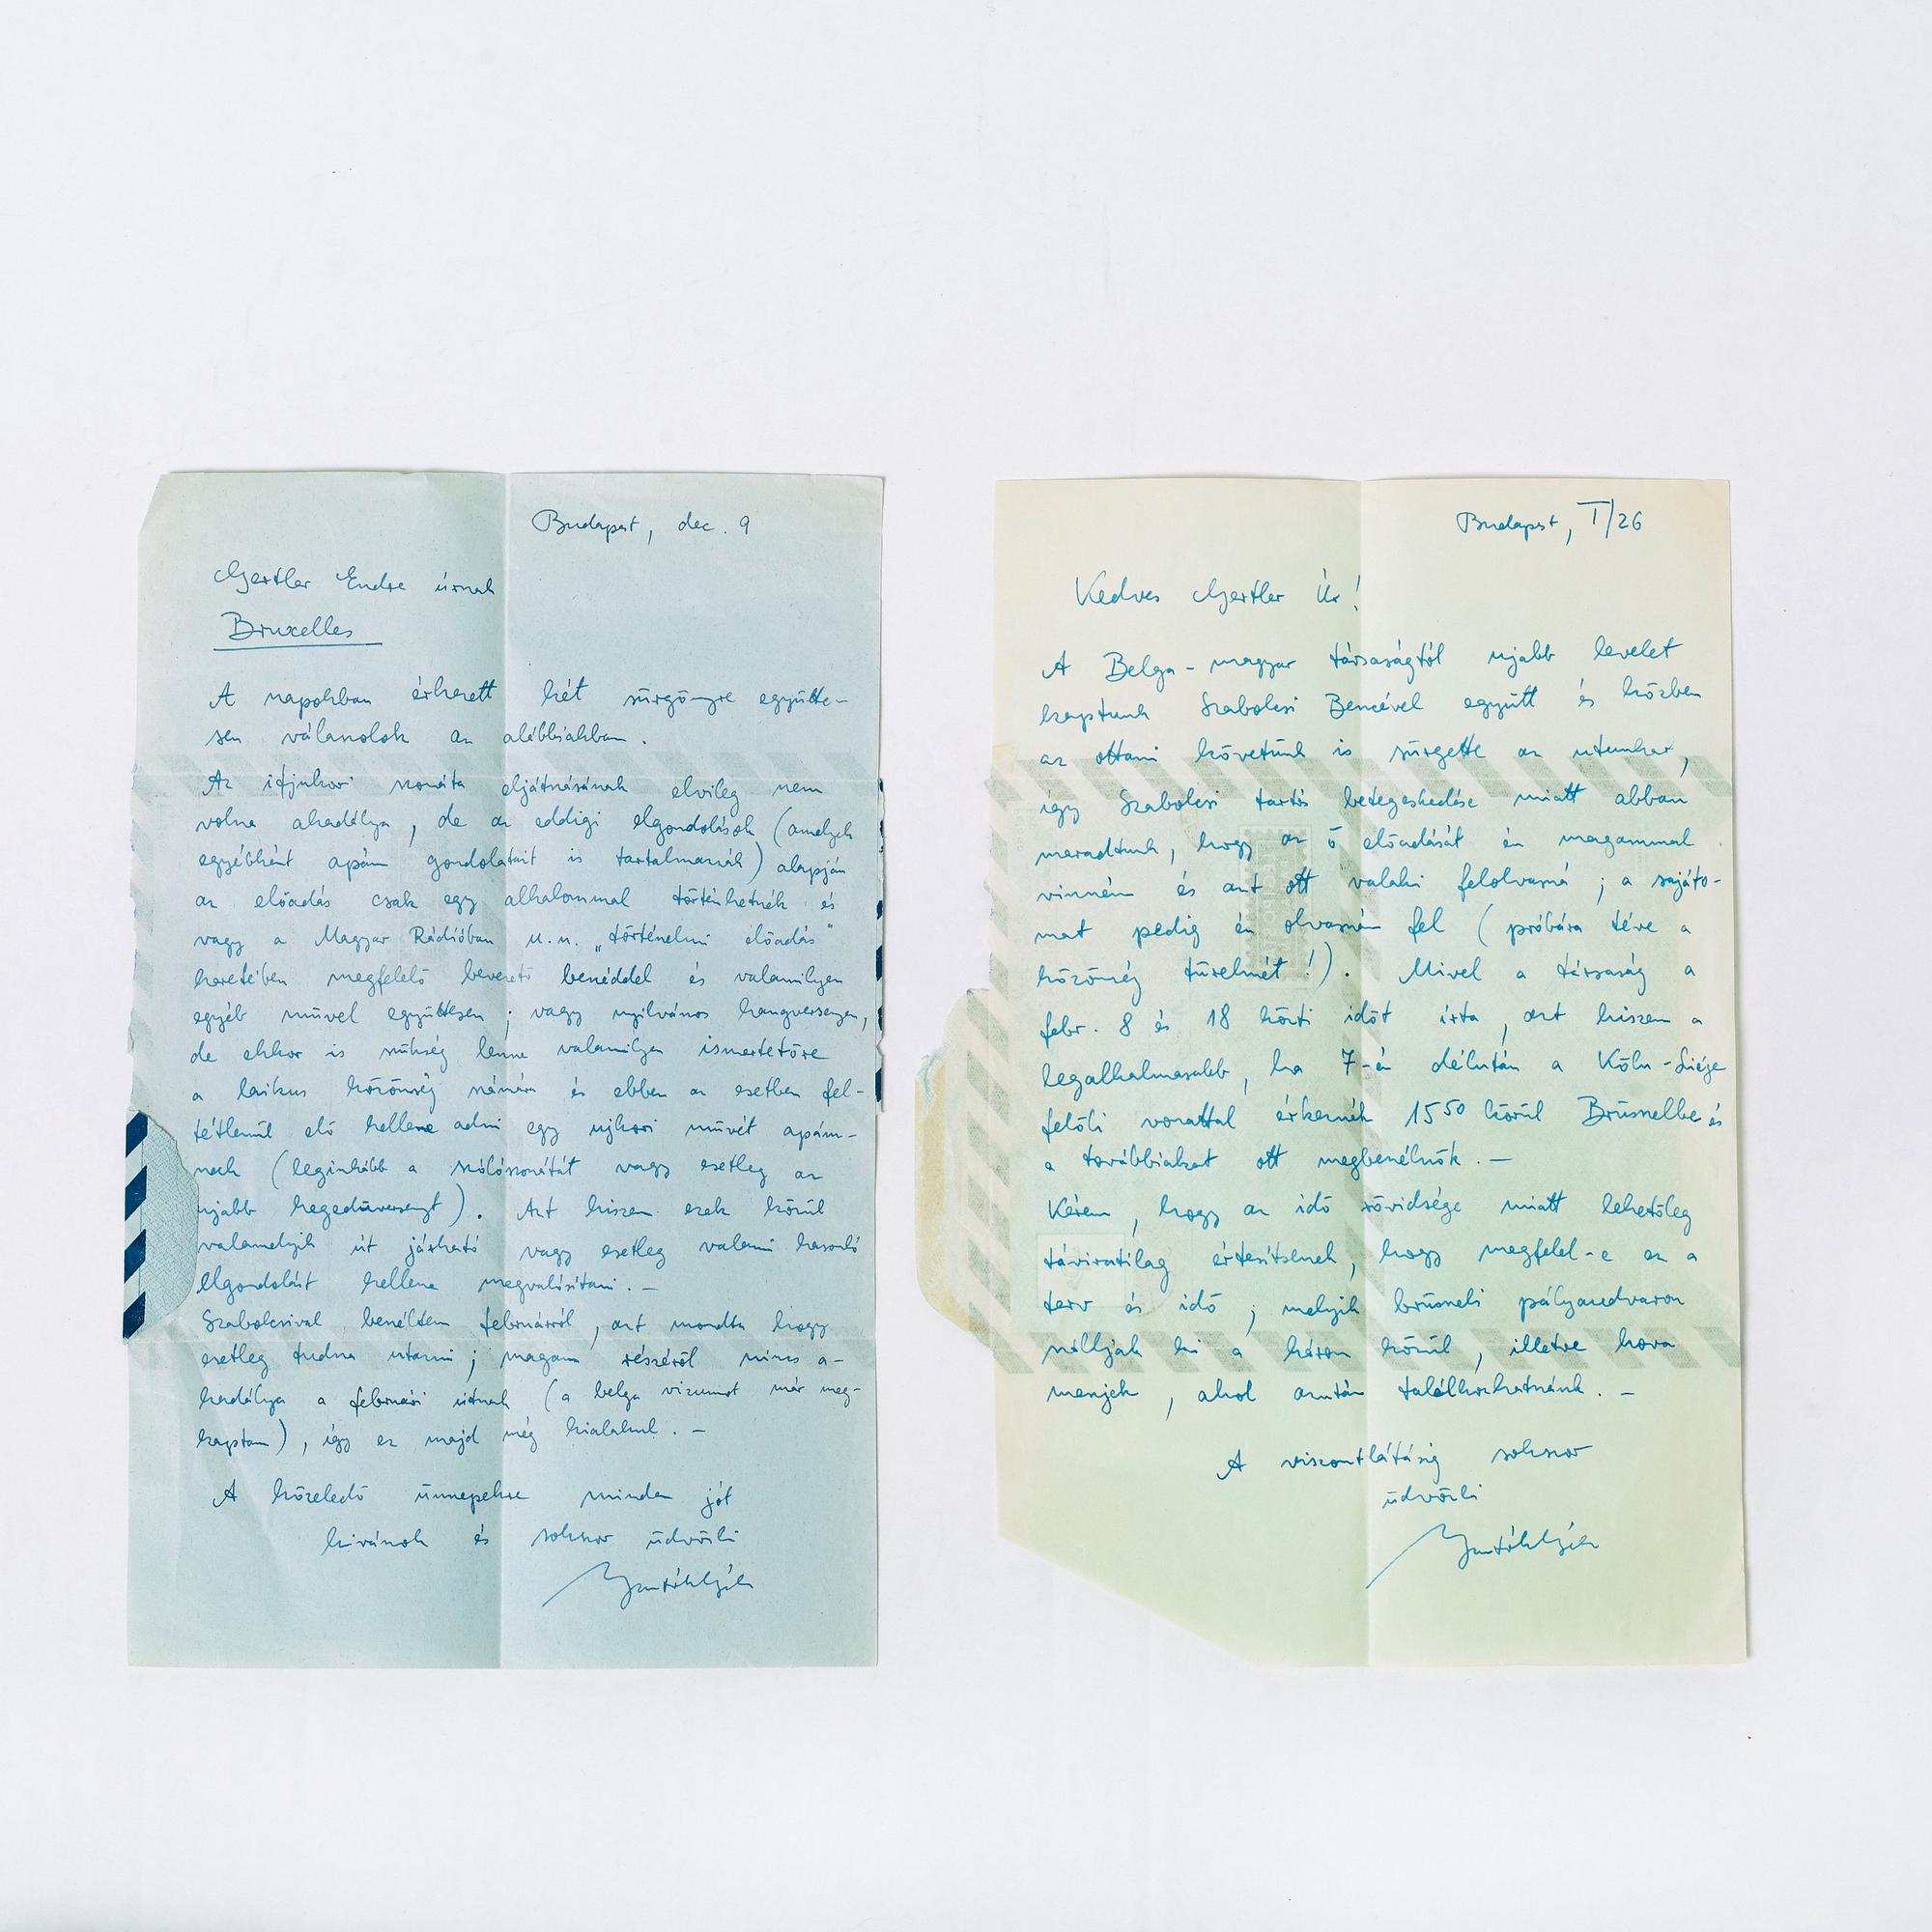 Budapest, dec. 9
Gertler Endre úrnak
Bruxelles
A napokban érkezett két sürgönyre együtte-
sen válaszolok az alábbiakban.
Az ifjukori szonáta eljátszásának elvileg nem
volna akadálya, de az eddigi elgondolások (amelyek
egyébként apám gondolatait is tartalmazzák) alapján
az előadás csak egy alkalommal történhetnék és
vagy a Magyar Rádióban u.n. „történelmi előadás"
keretében megfelelő bevezető beszéddel és valamilyen
egyéb művel együttesen; vagy nyilvános hangversenyen,
de ekkor is szükség lenne valamilyen ismertetőre
a laikus közönség számára és ebben az esetben fel-
tétlenül elő kellene adni egy ujkori művét apám-
nak (leginkább a szólószonátát vagy esetleg az
ujabb hegedűversenyt). Azt hiszem ezek közül
valamelyik út járható vagy esetleg valami hasonló
elgondolást kellene megvalósítani. –
Szabolcsival beszéltem februárról, azt mondta hogy
esetleg tudna utazni; magam részéről nincs a-
kadálya a februári útnak (a belga vizumot már meg-
kaptam), így ez majd még kialakul. –
A közeledő ünnepekre minden jót
kívánok és sokszor üdvözli
Bartók Béla
Budapest, I/26
Kedves Gertler Úr!
A Belga-magyar társaságtól ujabb levelet
kaptunk Szabolcsi Bencével együtt és közben
az ottani követünk is sürgette az utunkat,
így Szabolcsi tartós betegeskedése miatt abban
maradtunk, hogy az ő előadását én magammal
vinném és azt ott valaki felolvasná; a sajáto-
mat pedig én olvasnám fel (próbára téve a
közönség türelmét!). Mivel a társaság a
febr. 8 és 18 közti időt írta, azt hiszem a
legalkalmasabb, ha 7-én délután a Köln-Liége
felőli vonattal érkeznék 15⁵⁰ körül Brüsselbe és
a továbbiakat ott megbeszélnők. –
Kérem, hogy az idő rövidsége miatt lehetőleg
táviratilag értesítsenek, hogy megfelel-e ez a
terv és idő; melyik brüsseli pályaudvaron
szálljak ki a három közül, illetve hova
menjek, ahol azután találkozhatnánk. –
A viszontlátásig sokszor
üdvözli
Bartók Béla